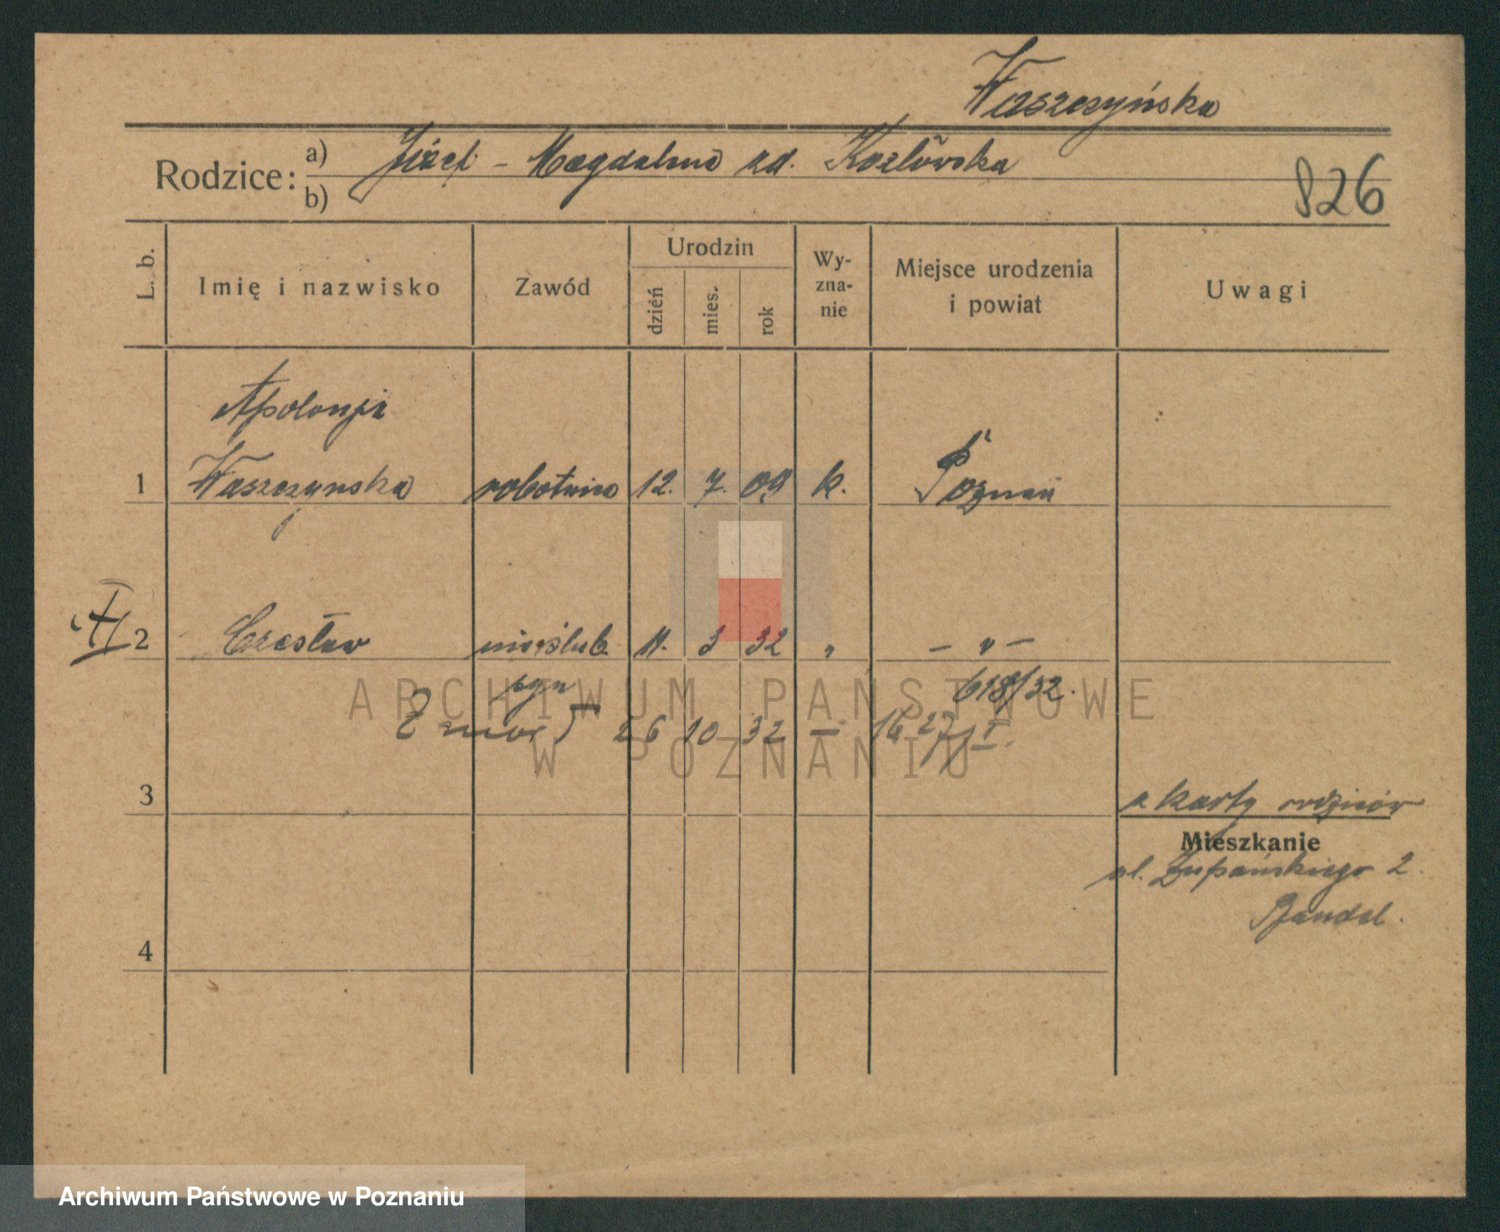 Waszczyńska
Rodzice: a) Józef - Magdalena zd. Kozłowska
b)
826
L. b. Imię i nazwisko Zawód Urodzin dzień mies. rok Wy-zna-nie Miejsce urodzenia i powiat Uwagi
Apolonja
1 Waszczynska robotnica 12. 7. 09 k. Poznań
2 Czesław nieślub. 11. 3 32 " - " -
syn 618/32.
Zmarł 26 10 32
3
z karty rodziców
Mieszkanie
ul. Żupańskiego 2.
4
ARCHIWUM PAŃSTWOWE
W POZNANIU
Archiwum Państwowe w Poznaniu